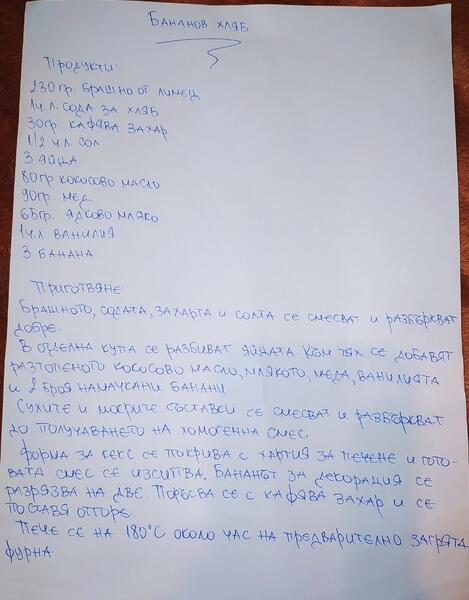 Бананов хляб
Продукти:
230гр. брашно от лимец
1ч.л. сода за хляб
30гр. кафява захар
1/2 ч.л. сол
3 яйца
80гр кокосово масло
90гр. мед
65гр. ядково мляко
1ч.л. ванилия
3 банана
Приготвяне:
Брашното, содата, захарта и солта се смесват и разбъркват
добре.
В отделна купа се разбиват яйцата. Към тях се добавят
разтопеното кокосово масло, млякото, меда, ванилията
и 2 броя намачкани банани
Сухите и мокрите съставки се смесват и разбъркват
до получаването на хомогенна смес.
Форма за кекс се покрива с хартия за печене и гото-
вата смес се изсипва. Бананът за декорация се
разрязва на две. Поръсва се с кафява захар и се
поставя отгоре.
Пече се на 180°C около час на предварително загрята
фурна.